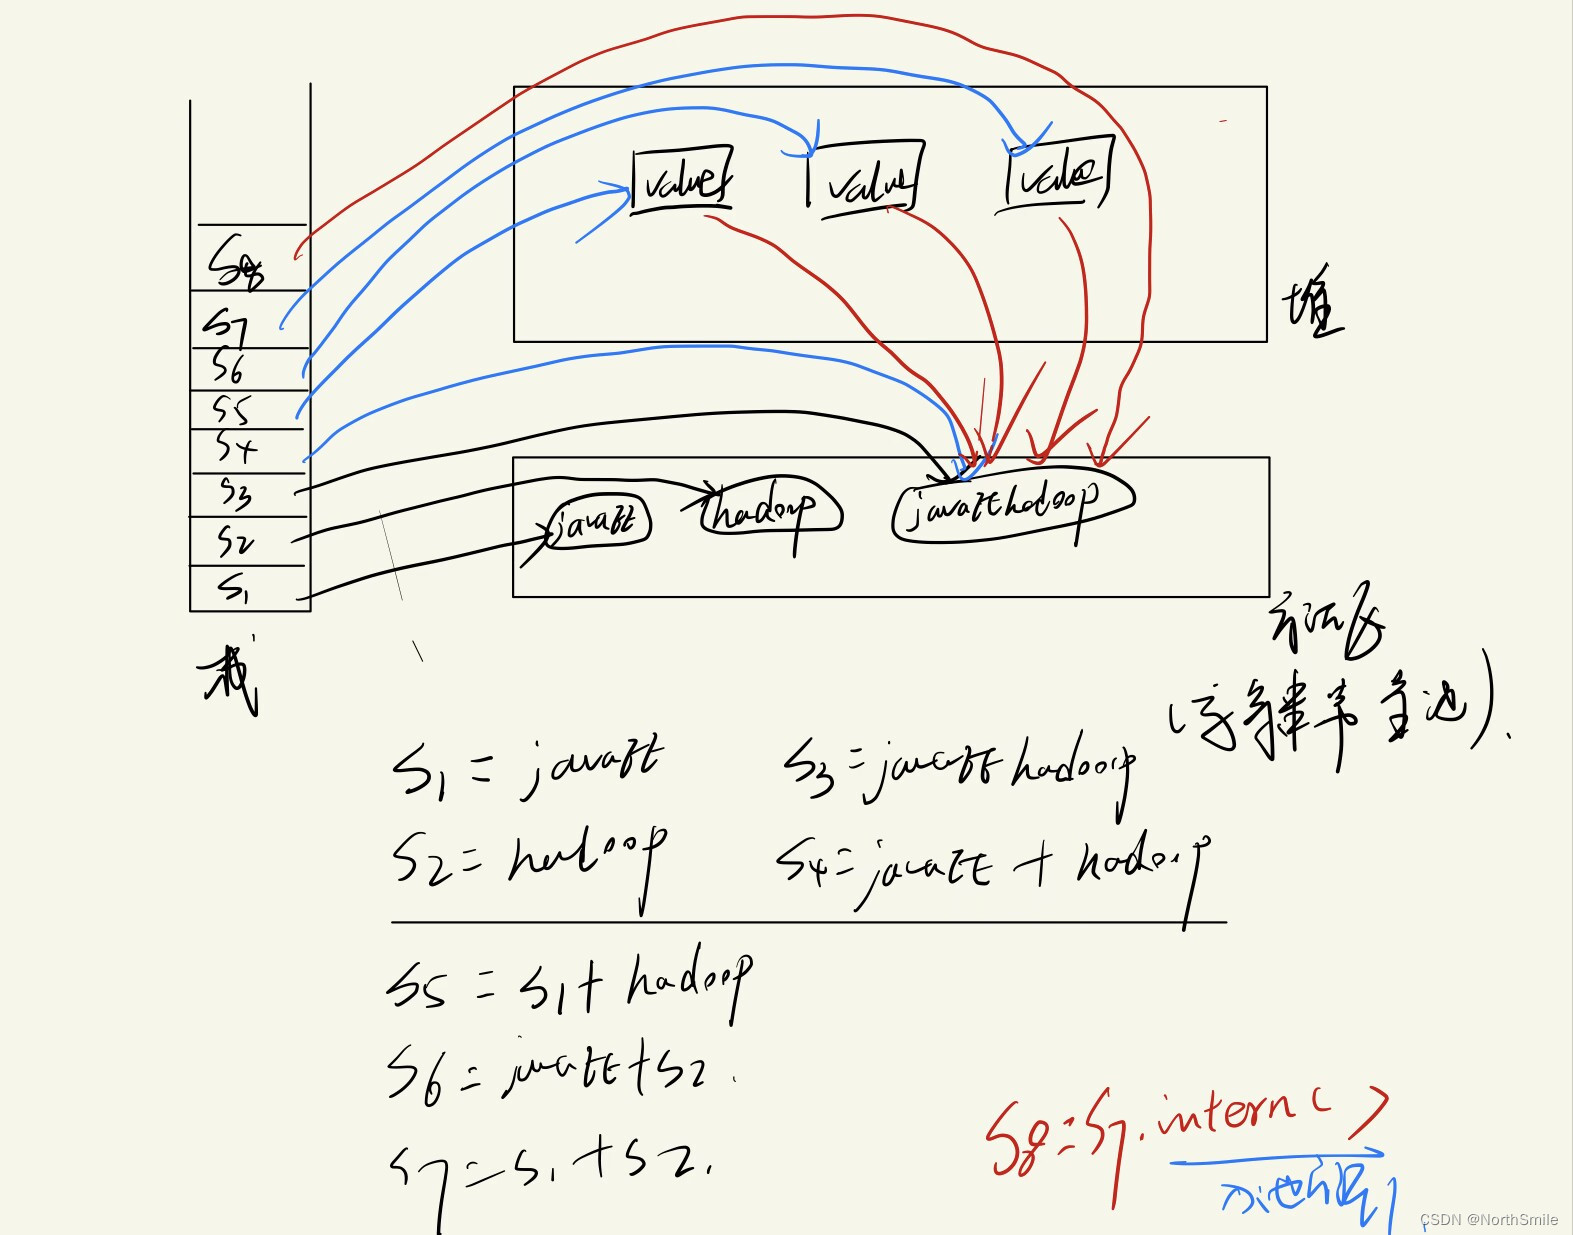 S8
S7
S6
S5
S4
S3
S2
S1
栈
value
value
value
堆
javaEE
hadoop
javaEEhadoop
方法区
(字符串常量池).
S1 = javaEE
S2 = hadoop
S3 = javaEE hadoop
S4 = javaEE + hadoop
S5 = S1 + hadoop
S6 = javaEE + S2.
S7 = S1 + S2.
S8 = S7.intern()
CSDN @NorthSmile